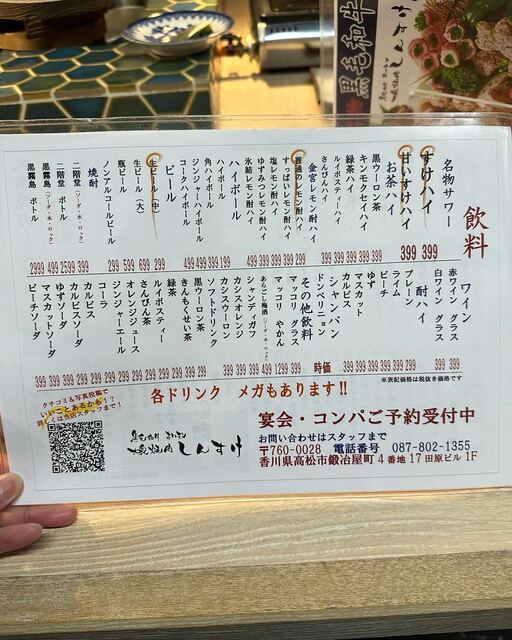 黒毛和牛
しんすけ
飲料
名物サワー
すけハイ 399
甘いすけハイ 399
お茶ハイ
黒ウーロン茶
キンモクセイハイ
緑茶ハイ
ルイボスティーハイ
さんぴんハイ
金宮レモン酎ハイ
普通のレモン酎ハイ 299
すっぱいレモン酎ハイ
塩レモン酎ハイ
ゆずみつレモン酎ハイ
氷結レモン酎ハイ
ハイボール
ハイボール
角ハイボール
ジンジャーハイボール
コークハイボール
ビール
生ビール(中) 299
生ビール(大) 699
瓶ビール 599
ノンアルコールビール 299
焼酎
二階堂(ソーダ・水・ロック) 399
二階堂 ボトル 2599
黒霧島(ソーダ・水・ロック) 499
黒霧島 ボトル 2999
ワイン
赤ワイン グラス 399
白ワイン グラス 399
酎ハイ
プレーン 399
ライム 399
ピーチ 399
ゆず 399
マスカット 399
カルピス 399
シャンパン
ドンペリニョン 時価
その他飲料
マッコリ グラス 399
マッコリ やかん 1299
あらごし梅酒(ソーダ・水・ロック) 499
シャンディガフ 399
カシスオレンジ 399
カシスウーロン 399
ソフトドリンク
黒ウーロン茶 399
きんもくせい茶 399
緑茶 399
ルイボスティー 399
さんぴん茶 399
オレンジジュース 399
ジンジャーエール 399
コーラ 399
カルピス 399
カルピスソーダ 399
ゆずソーダ 399
マスカットソーダ 399
ピーチソーダ 399
※表記価格は税抜き価格です
各ドリンク メガもあります!!
クチコミ&写真投稿で
いいことあるかも!?
詳しくは当店スタッフまで!
黒毛和牛 ホルモン
焼焼肉 しんすけ
宴会・コンパご予約受付中
お問い合わせはスタッフまで
〒760-0028 電話番号 087-802-1355
香川県高松市鍛冶屋町4番地17田原ビル1F